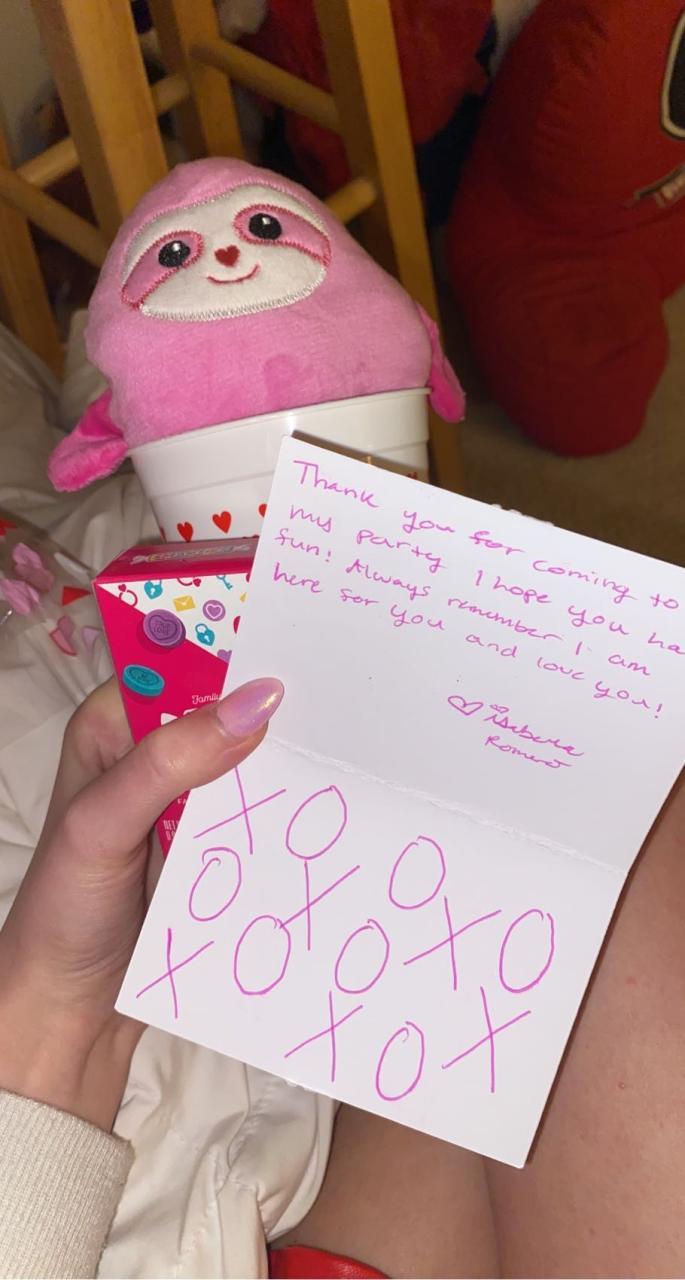 Thank you for coming to
my party I hope you ha
fun! Always remember I am
here for you and love you!
♡ Isabela
Romero
X O O
O X X O
X O O
X O X
Family